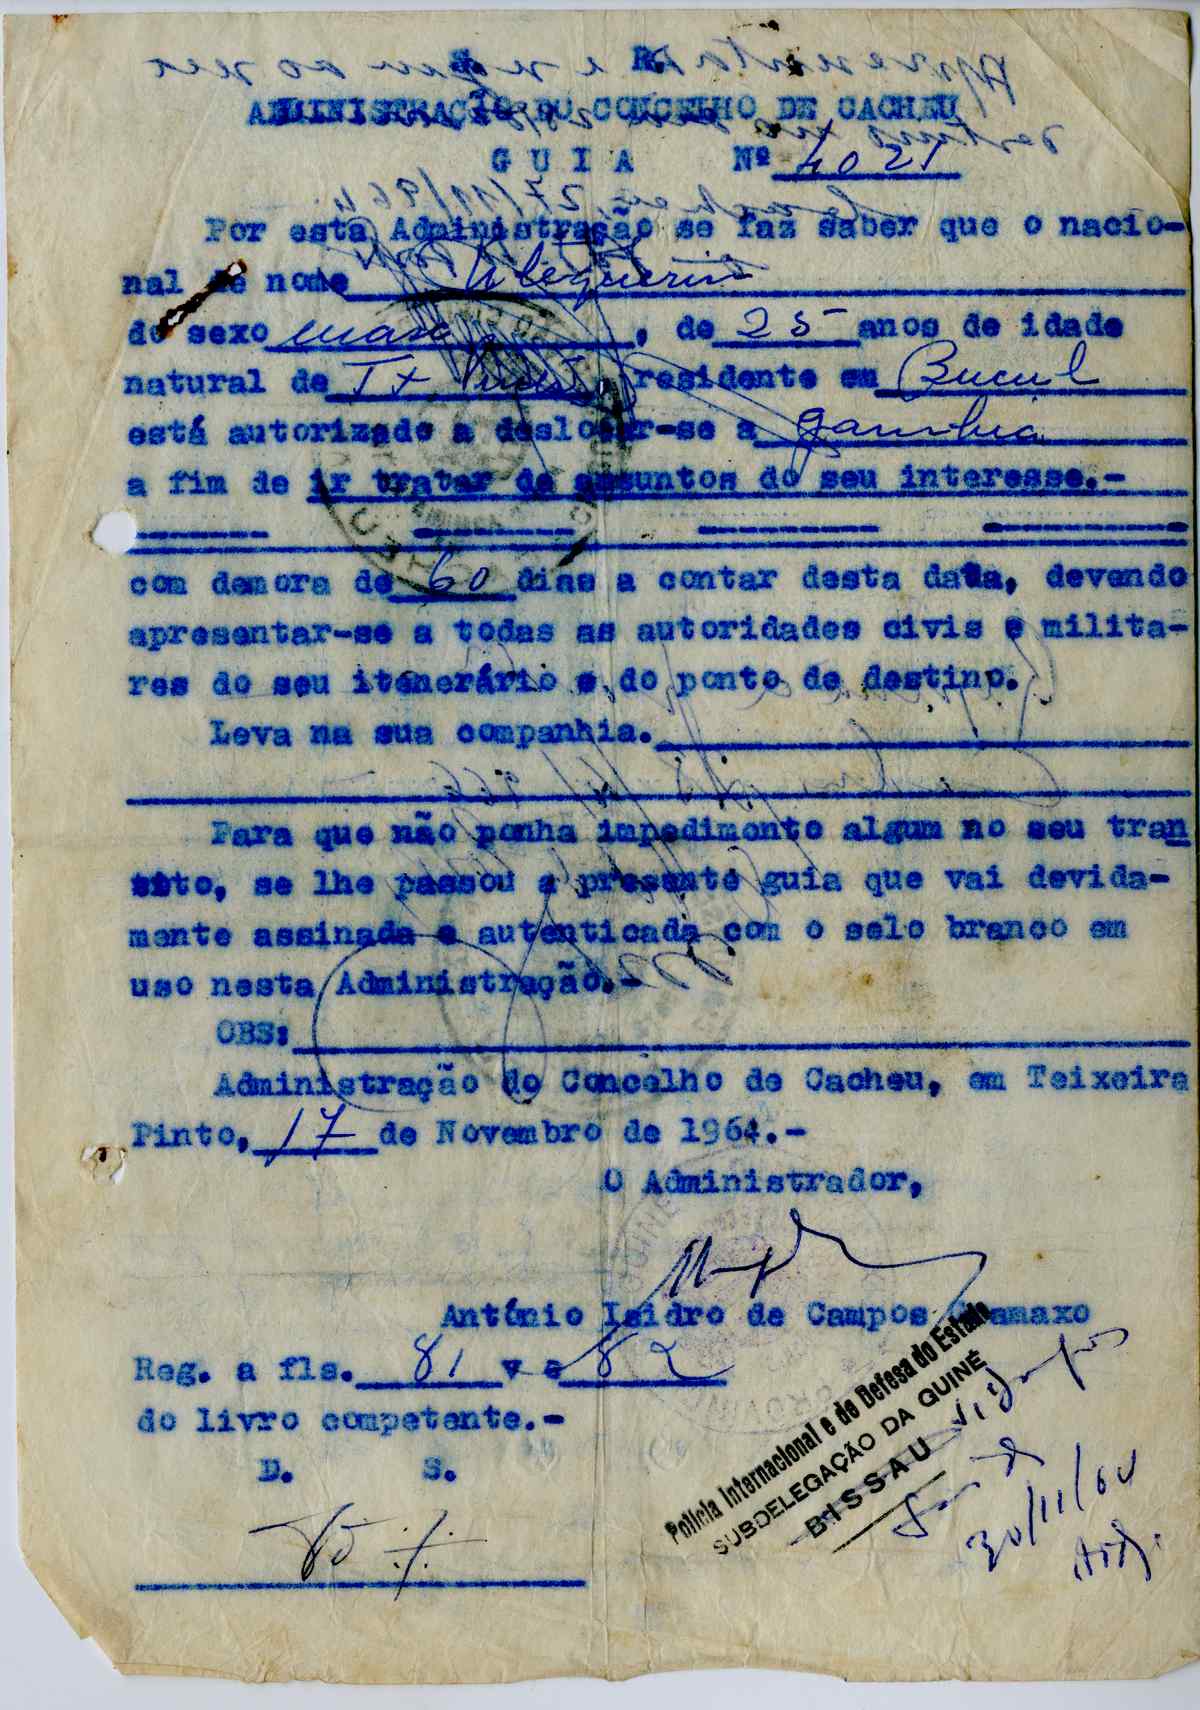 S. R.
ADMINISTRAÇÃO DO CONCELHO DE CACHEU
GUIA Nº 4021
Por esta Administração se faz saber que o nacio-
nal de nome
do sexo masc , de 25 anos de idade
natural de Tx. Pinto, residente em Bucul
está autorizado a deslocar-se a Gambia
a fim de ir tratar de assuntos do seu interesse.-
com demora de 60 dias a contar desta data, devendo
apresentar-se a todas as autoridades civis e milita-
res do seu itenerário e do ponto de destino.
Leva na sua companhia.
Para que não ponha impedimento algum no seu tran
sito, se lhe passou a presente guia que vai devida-
mente assinada e autenticada com o selo branco em
uso nesta Administração.-
OBS:
Administração do Concelho de Cacheu, em Teixeira
Pinto, 17 de Novembro de 1964.-
O Administrador,
António Isidro de Campos Gramaxo
Reg. a fls. 81 v e 82
do livro competente.-
D. S.
Policia Internacional e de Defesa do Estado
SUBDELEGAÇÃO DA GUINÉ
BISSAU
30/11/64